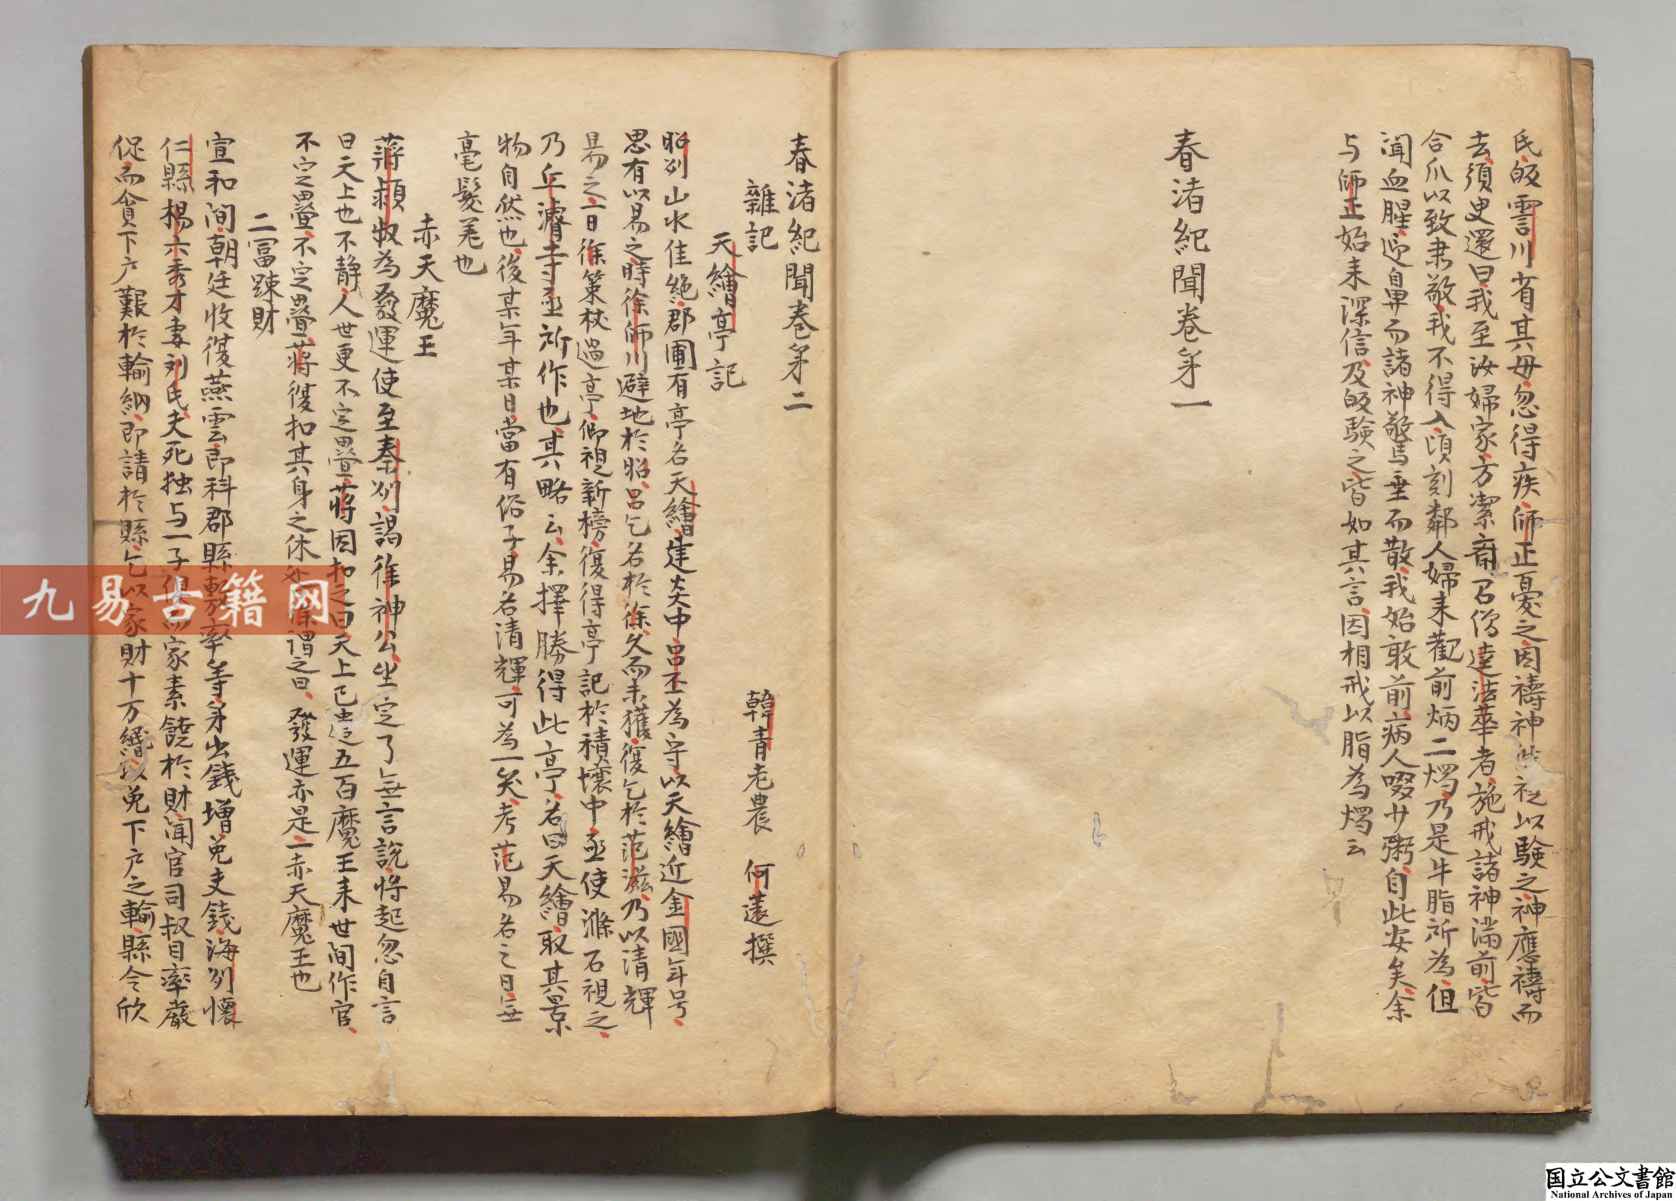 氏皈霅川省其母忽得疾師正憂之因禱神皆祀以驗之神應禱而
去須臾還曰我至汝婦家方潔齋召僧達法華者施戒諸神滿前皆
合爪以致肅敬我不得入頃刻鄰人婦來觀前炳二燭乃是牛脂所為但
聞血腥迎鼻而諸神驚垂而散我始敢前病人啜少粥自此安矣余
与師正始末深信及皈驗之皆如其言因相戒以脂為燭云
春渚紀聞卷第一
春渚紀聞卷第二
雜記
韓青老農 何薳撰
天繪亭記
昭州山水佳絶郡圃有亭名天繪建炎中呂丕為守以天繪近金國年号
思有以易之時徐師川避地於昭呂乞名於徐久而未獲復乞於范滋乃以清輝
易之一日徐策杖過亭仰視新榜復得亭記於積壤中亟使滌石視之
乃丘濬寺丞所作也其略云余擇勝得此亭名曰天繪取其景
物自然也後某年某日當有俗子易名清輝可為一笑考范易名之日無
毫髮差也
赤天魔王
蔣頴叔為發運使至泰州謁徐神公坐定了無言說將起忽自言
曰天上也不静人世更不定疊蔣因扣之曰天上已遣五百魔王来世間作官
不定疊不定疊蔣復扣其身之休咎徐謂之曰發運亦是一赤天魔王也
二冨踈財
宣和間朝廷收復燕雲即科郡縣敷率等第出錢增免夫錢海州懷
仁縣楊六秀才妻刘氏夫死独与一子俱而家素饒於財聞官司叔目率嚴
促而貪下户艱於輸納即請於縣乞以家財十万緡以免下户之輸縣令欣
九易古籍网
国立公文書館
National Archives of Japan